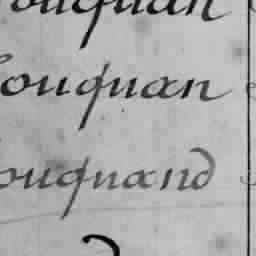 ouquan
ouquan
ouquand